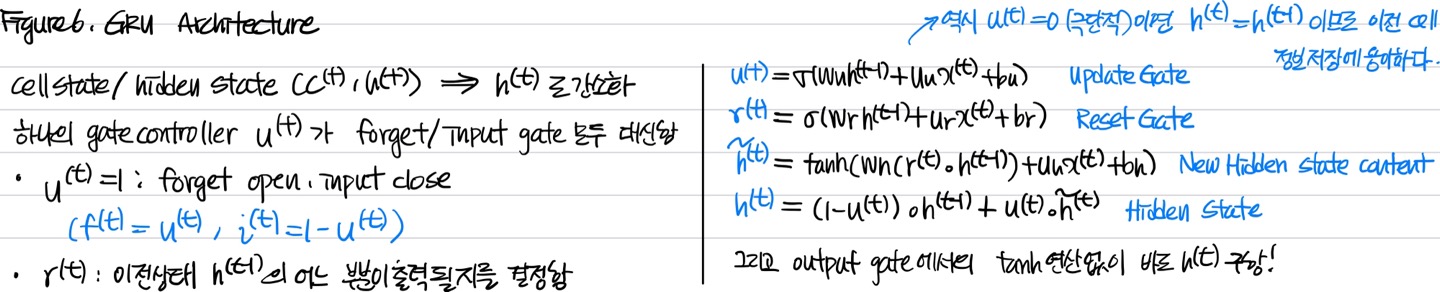 Figure 6. GRU Architecture
cell state / hidden state (c^(t), h^(t)) ⇒ h^(t) 로 간소화
하나의 gate controller u^(t) 가 forget/input gate 모두 대신함
• u^(t) = 1 : forget open, input close
(f^(t) = u^(t), i^(t) = 1 - u^(t))
• r^(t) : 이전상태 h^(t-1)의 어느 부분이 출력될지를 결정함
↗ 역시 u(t)=0 (극단적)이면 h^(t) = h^(t-1) 이므로 이전 cell
정보 저장에 용이하다.
u^(t) = σ(Wu h^(t-1) + Uu x^(t) + bu) Update Gate
r^(t) = σ(Wr h^(t-1) + Ur x^(t) + br) Reset Gate
h̃^(t) = tanh(Wh(r^(t) ∘ h^(t-1)) + Uh x^(t) + bh) New Hidden state content
h^(t) = (1 - u^(t)) ∘ h^(t-1) + u(t) ∘ h̃^(t) Hidden State
그리고 output gate에서의 tanh 연산없이 바로 h(t) 구함!